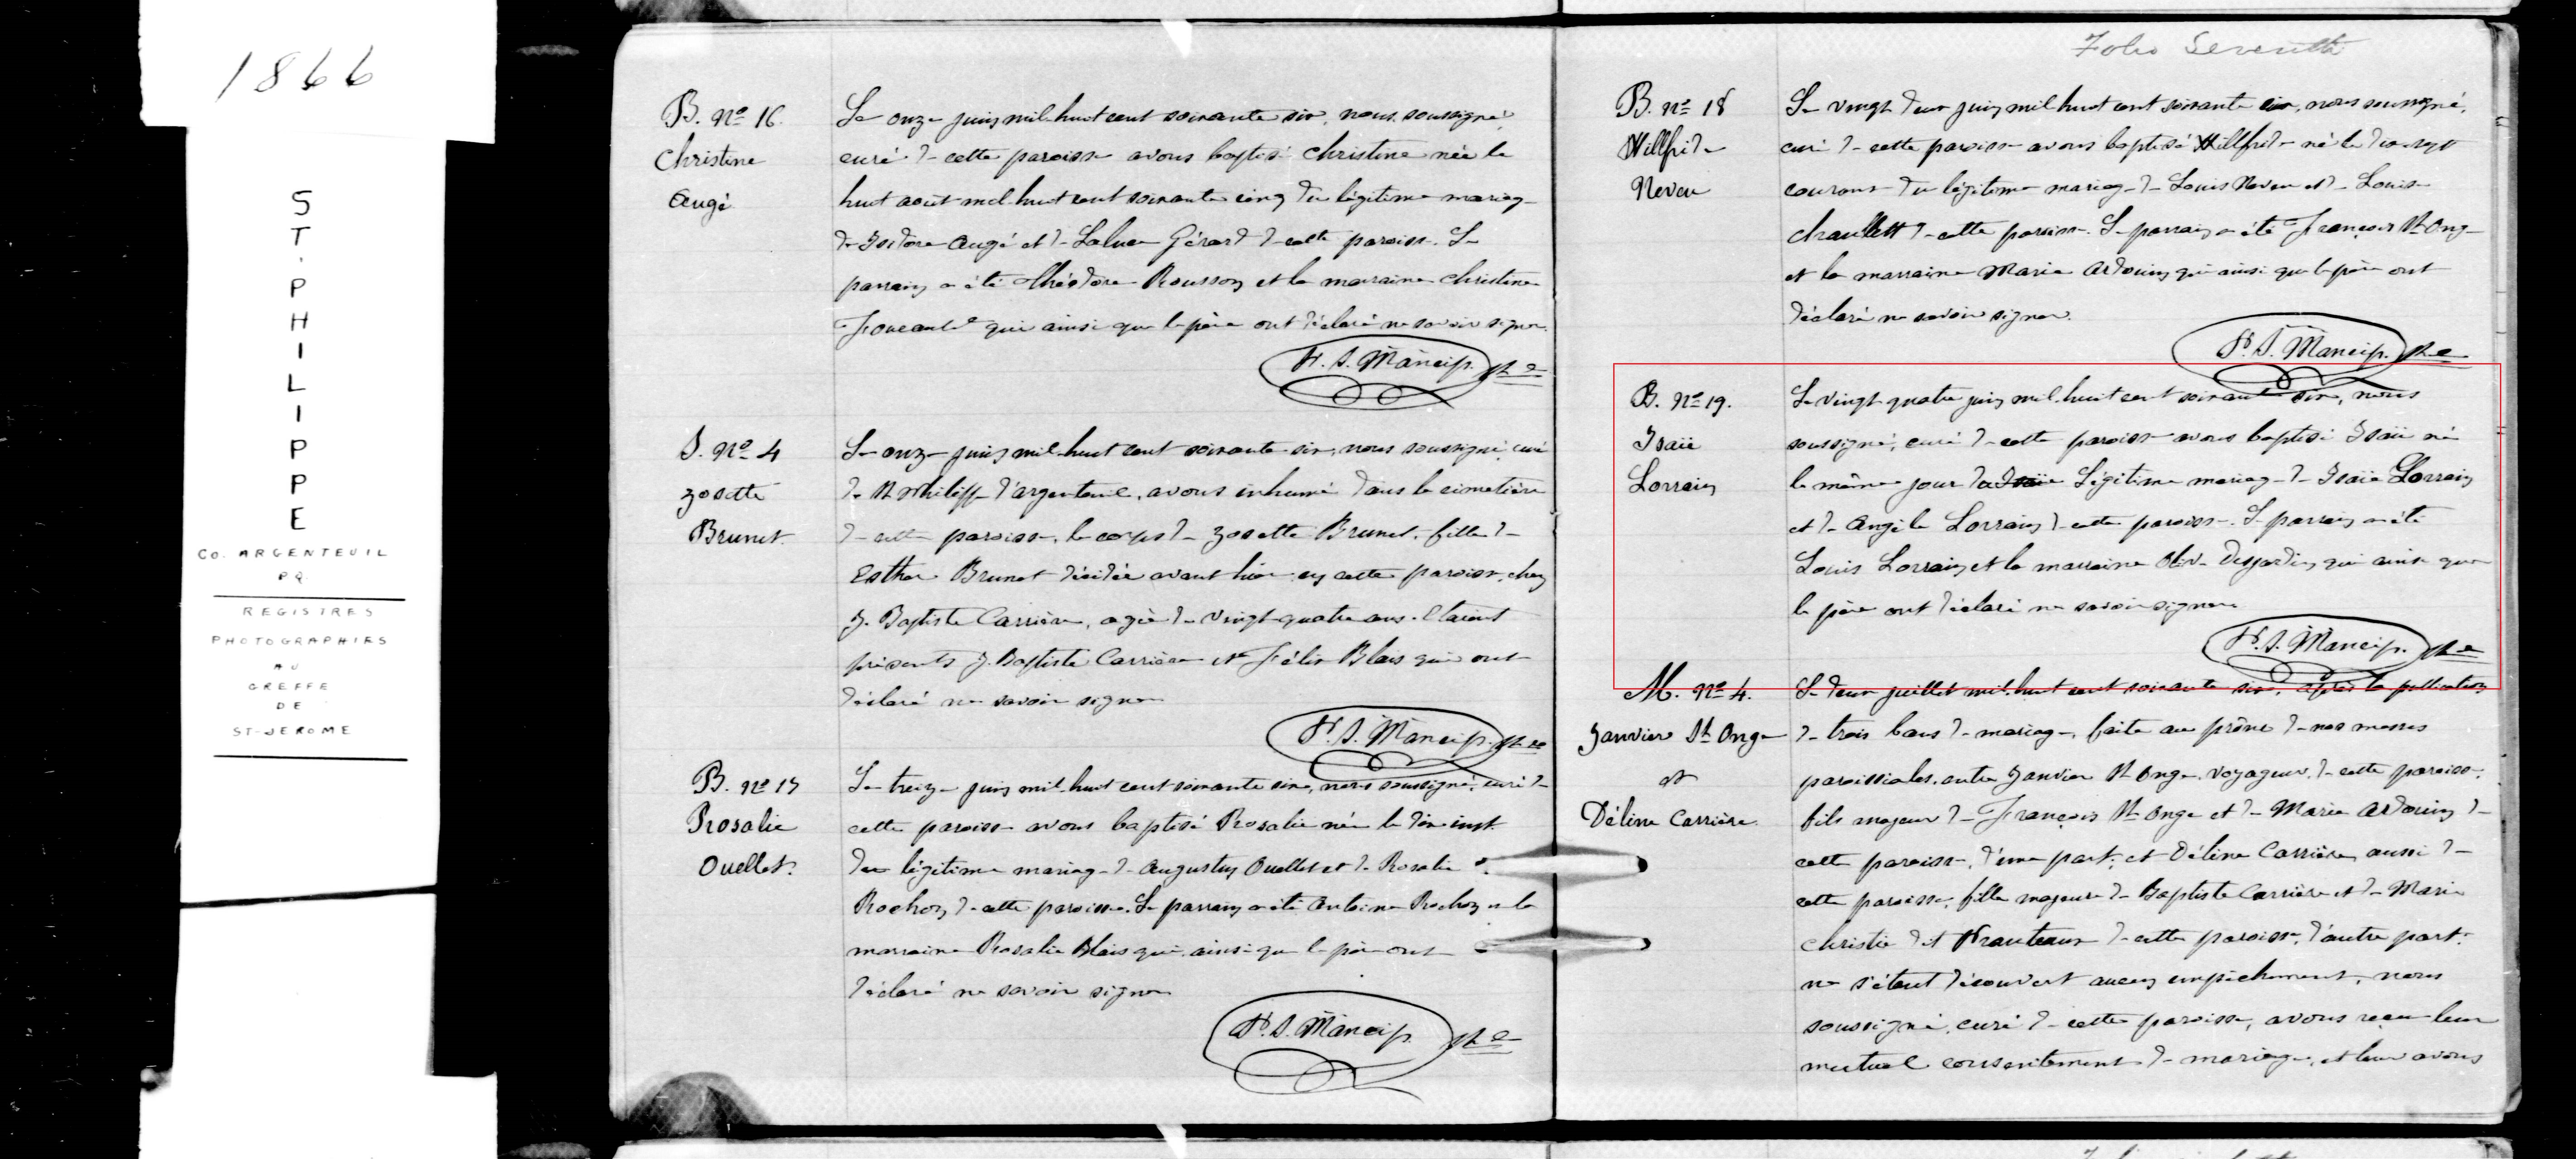 1866
ST. PHILIPPE
CO. ARGENTEUIL
P.Q.
REGISTRES
PHOTOGRAPHIES
AU
GREFFE
DE
ST-JEROME
B. No 16.
Christine
Augé
Le onze juin mil huit cent soixante six, nous soussigné,
curé de cette paroisse avons baptisé Christine née le
huit août mil huit cent soixante cinq du légitime mariage
de Isidore Augé et de Gérard de cette paroisse. Le
parrain a été Théodore Rousson et la marraine Christine
qui ainsi que le père ont déclaré ne savoir signer.
F. S. Mancip. Ptre
S. No 4
Zosette
Brunet
Le onze juin mil huit cent soixante six, nous soussigné, curé
de St Philippe d'argenteuil, avons inhumé dans le cimetière
de cette paroisse, le corps de Zosette Brunet, fille de
Esther Brunet décédée avant hier en cette paroisse, chez
J. Baptiste Carrière, agée de vingt quatre ans. Etaient
présents J. Baptiste Carrière et Félix Blais qui ont
déclaré ne savoir signer
F. S. Mancip. Ptre
B. No 17
Rosalie
Ouellet.
Le treize juin mil huit cent soixante six, nous soussigné, curé de
cette paroisse avons baptisé Rosalie née le dix inst.
du légitime mariage de Augustin Ouellet et de Rosalie
Rochon de cette paroisse. Le parrain a été Antoine Rochon et la
marraine Rosalie Blais qui ainsi que le père ont
déclaré ne savoir signer
F. S. Mancip. Ptre
Folio Seventh
B. No 18
Willfride
Neveu
Le vingt deux juin mil huit cent soixante six, nous soussigné,
curé de cette paroisse avons baptisé Willfride né le dix-sept
courant du légitime mariage de Louis Neveu et de Louise
de cette paroisse. Le parrain a été François St Onge
et la marraine Marie Ardouin qui ainsi que le père ont
déclaré ne savoir signer.
F. S. Mancip. Ptre
B. No 19.
Isaïe
Lorrain
Le vingt quatre juin mil huit cent soixante six, nous
soussigné, curé de cette paroisse avons baptisé Isaïe né
le même jour du légitime mariage de Isaïe Lorrain
et de Angèle Lorrain de cette paroisse. Le parrain a été
Louis Lorrain et la marraine Desjardins qui ainsi que
le père ont déclaré ne savoir signer
F. S. Mancip. Ptre
M. No 4.
Janvier St Onge
et
Déline Carrière
Le deux juillet mil huit cent soixante six, après la publication
de trois bans de mariage, faite au prône de nos messes
paroissiales, entre Janvier St Onge, voyageur, de cette paroisse,
fils majeur de François St Onge et de Marie Ardouin de
cette paroisse, d'une part, et Déline Carrière, aussi de
cette paroisse, fille majeure de Baptiste Carrière et de Marie
Christie dit de cette paroisse, d'autre part.
ne s'étant découvert aucun empêchement, nous
soussigné, curé de cette paroisse, avons reçu leur
mutuel consentement de mariage, et leur avons